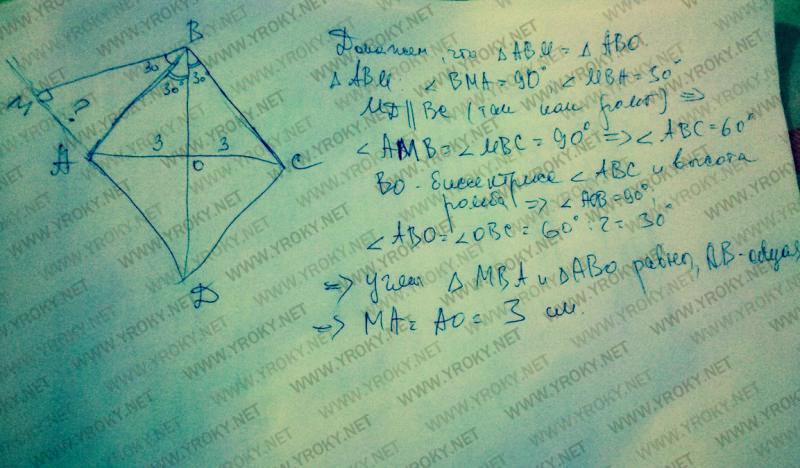 B
30
30
30
M
?
3
3
A
O
C
D
Докажем, что △ABM = △ABO
△ABM. ∠BMA = 90°, ∠MBA = 30°
MD || BC (так как ромб) =>
∠AMB = ∠MBC = 90° => ∠ABC = 60°
BO - биссектриса ∠ABC и высота
ромба => ∠AOB = 90°,
∠ABO = ∠OBC = 60° : 2 = 30°
=> углы △MBA и △ABO равны, AB - общая
=> MA = AO = 3 см.
WWW.YROKY.NET